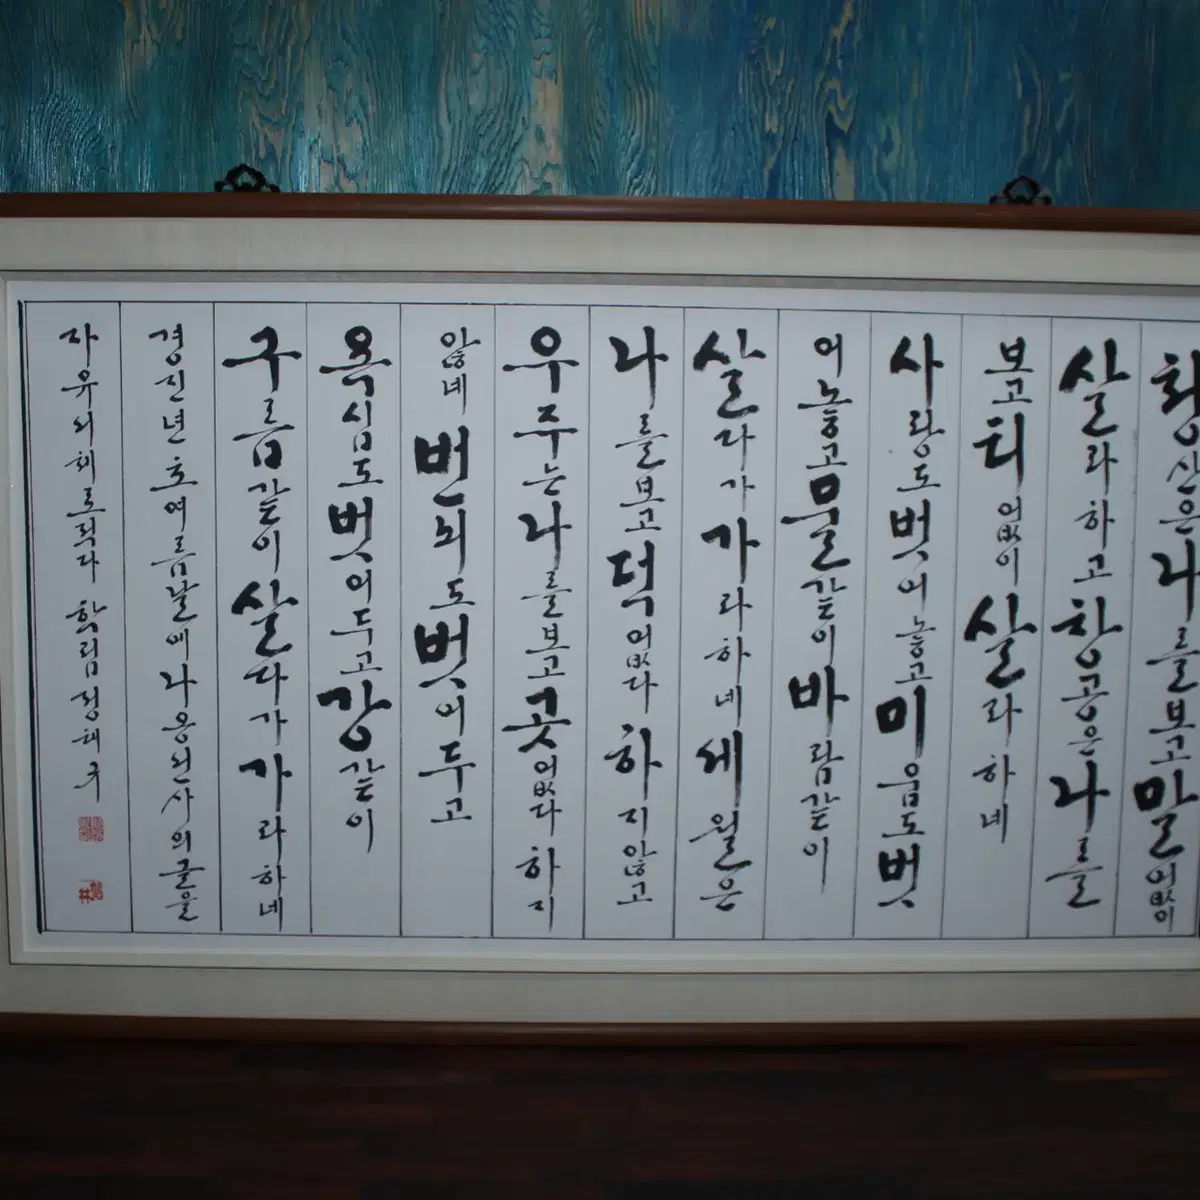 청산은 나를 보고 말없이
살라하고 창공은 나를
보고 티없이 살라하네
사랑도 벗어놓고 미움도 벗
어놓고 물같이 바람같이
살다가 가라하네 세월은
나를 보고 덧없다 하지않고
우주는 나를 보고 곳없다 하지
않네 번뇌도 벗어두고
욕심도 벗어두고 강같이
구름같이 살다가 가라하네
경진년 초여름날에 나옹선사의 글을
자유의체로 적다 학림 정해